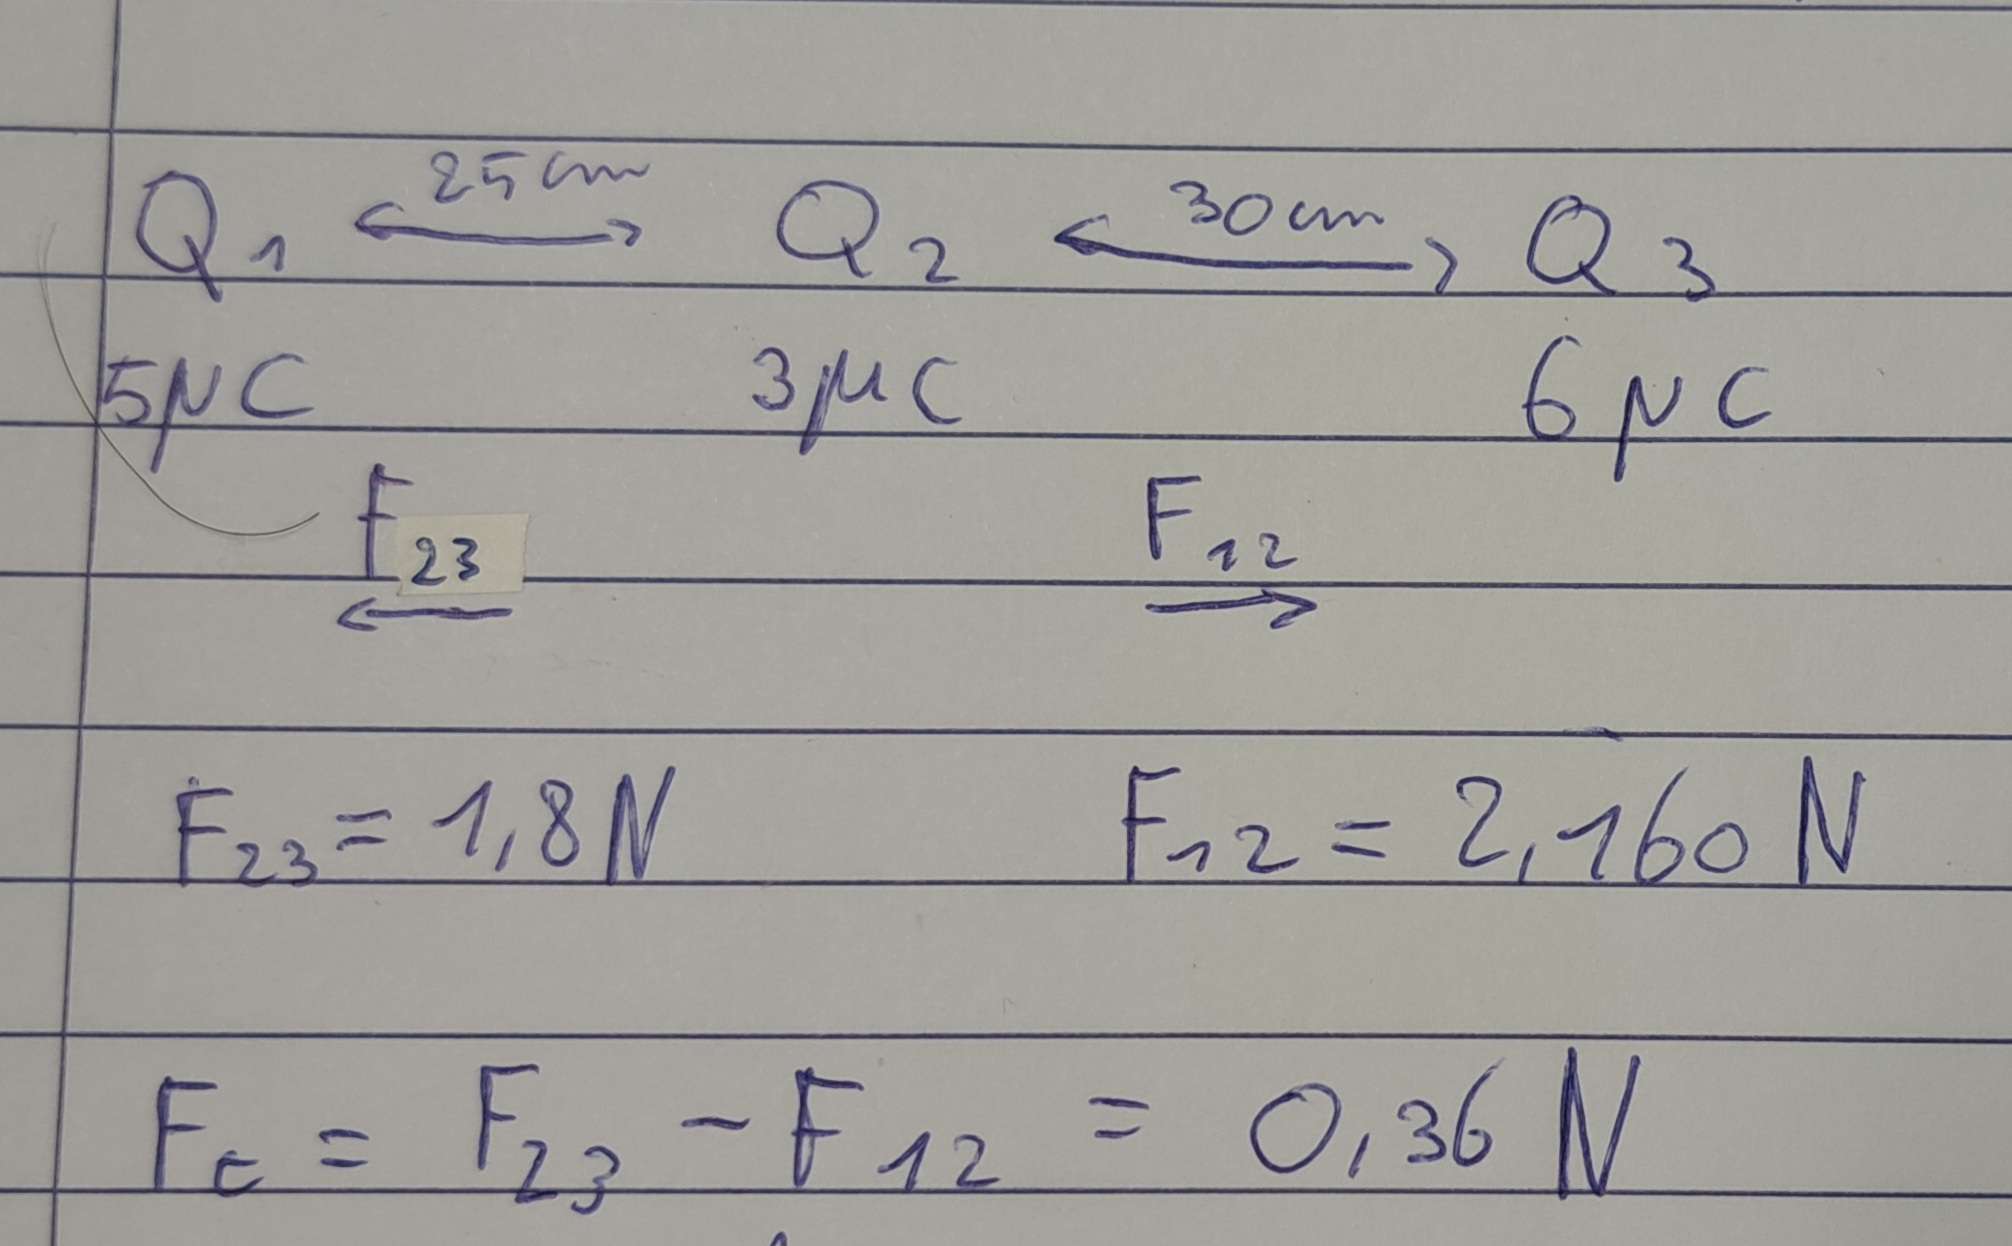 Q₁ ←25cm→ Q₂ ←30cm→ Q₃
5μC 3μC 6μC
F₂₃ F₁₂
← →
F₂₃ = 1,8N F₁₂ = 2,160 N
F_c = F₂₃ - F₁₂ = 0,36 N